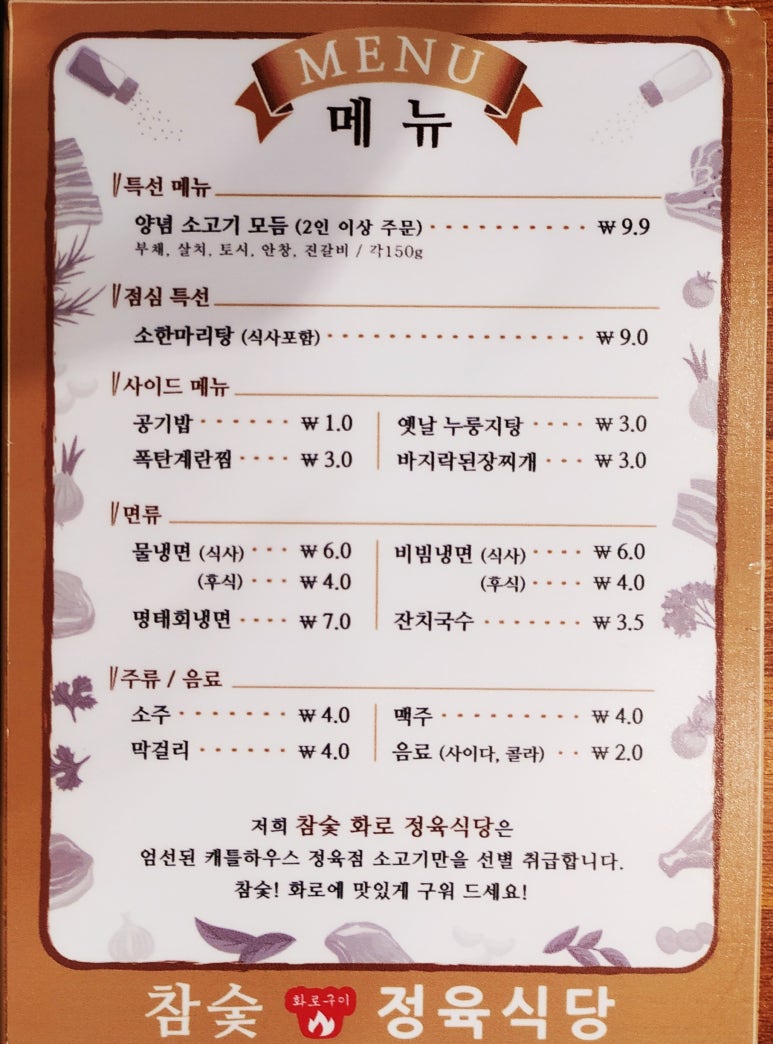 MENU
메뉴
특선 메뉴
양념 소고기 모듬 (2인 이상 주문) ₩ 9.9
부채, 살치, 토시, 안창, 진갈비 / 각150g
점심 특선
소한마리탕 (식사포함) ₩ 9.0
사이드 메뉴
공기밥 ₩ 1.0 옛날 누룽지탕 ₩ 3.0
폭탄계란찜 ₩ 3.0 바지락된장찌개 ₩ 3.0
면류
물냉면 (식사) ₩ 6.0 비빔냉면 (식사) ₩ 6.0
(후식) ₩ 4.0 (후식) ₩ 4.0
명태회냉면 ₩ 7.0 잔치국수 ₩ 3.5
주류 / 음료
소주 ₩ 4.0 맥주 ₩ 4.0
막걸리 ₩ 4.0 음료 (사이다, 콜라) ₩ 2.0
저희 참숯 화로 정육식당은
엄선된 캐틀하우스 정육점 소고기만을 선별 취급합니다.
참숯! 화로에 맛있게 구워 드세요!
참숯 화로구이 정육식당